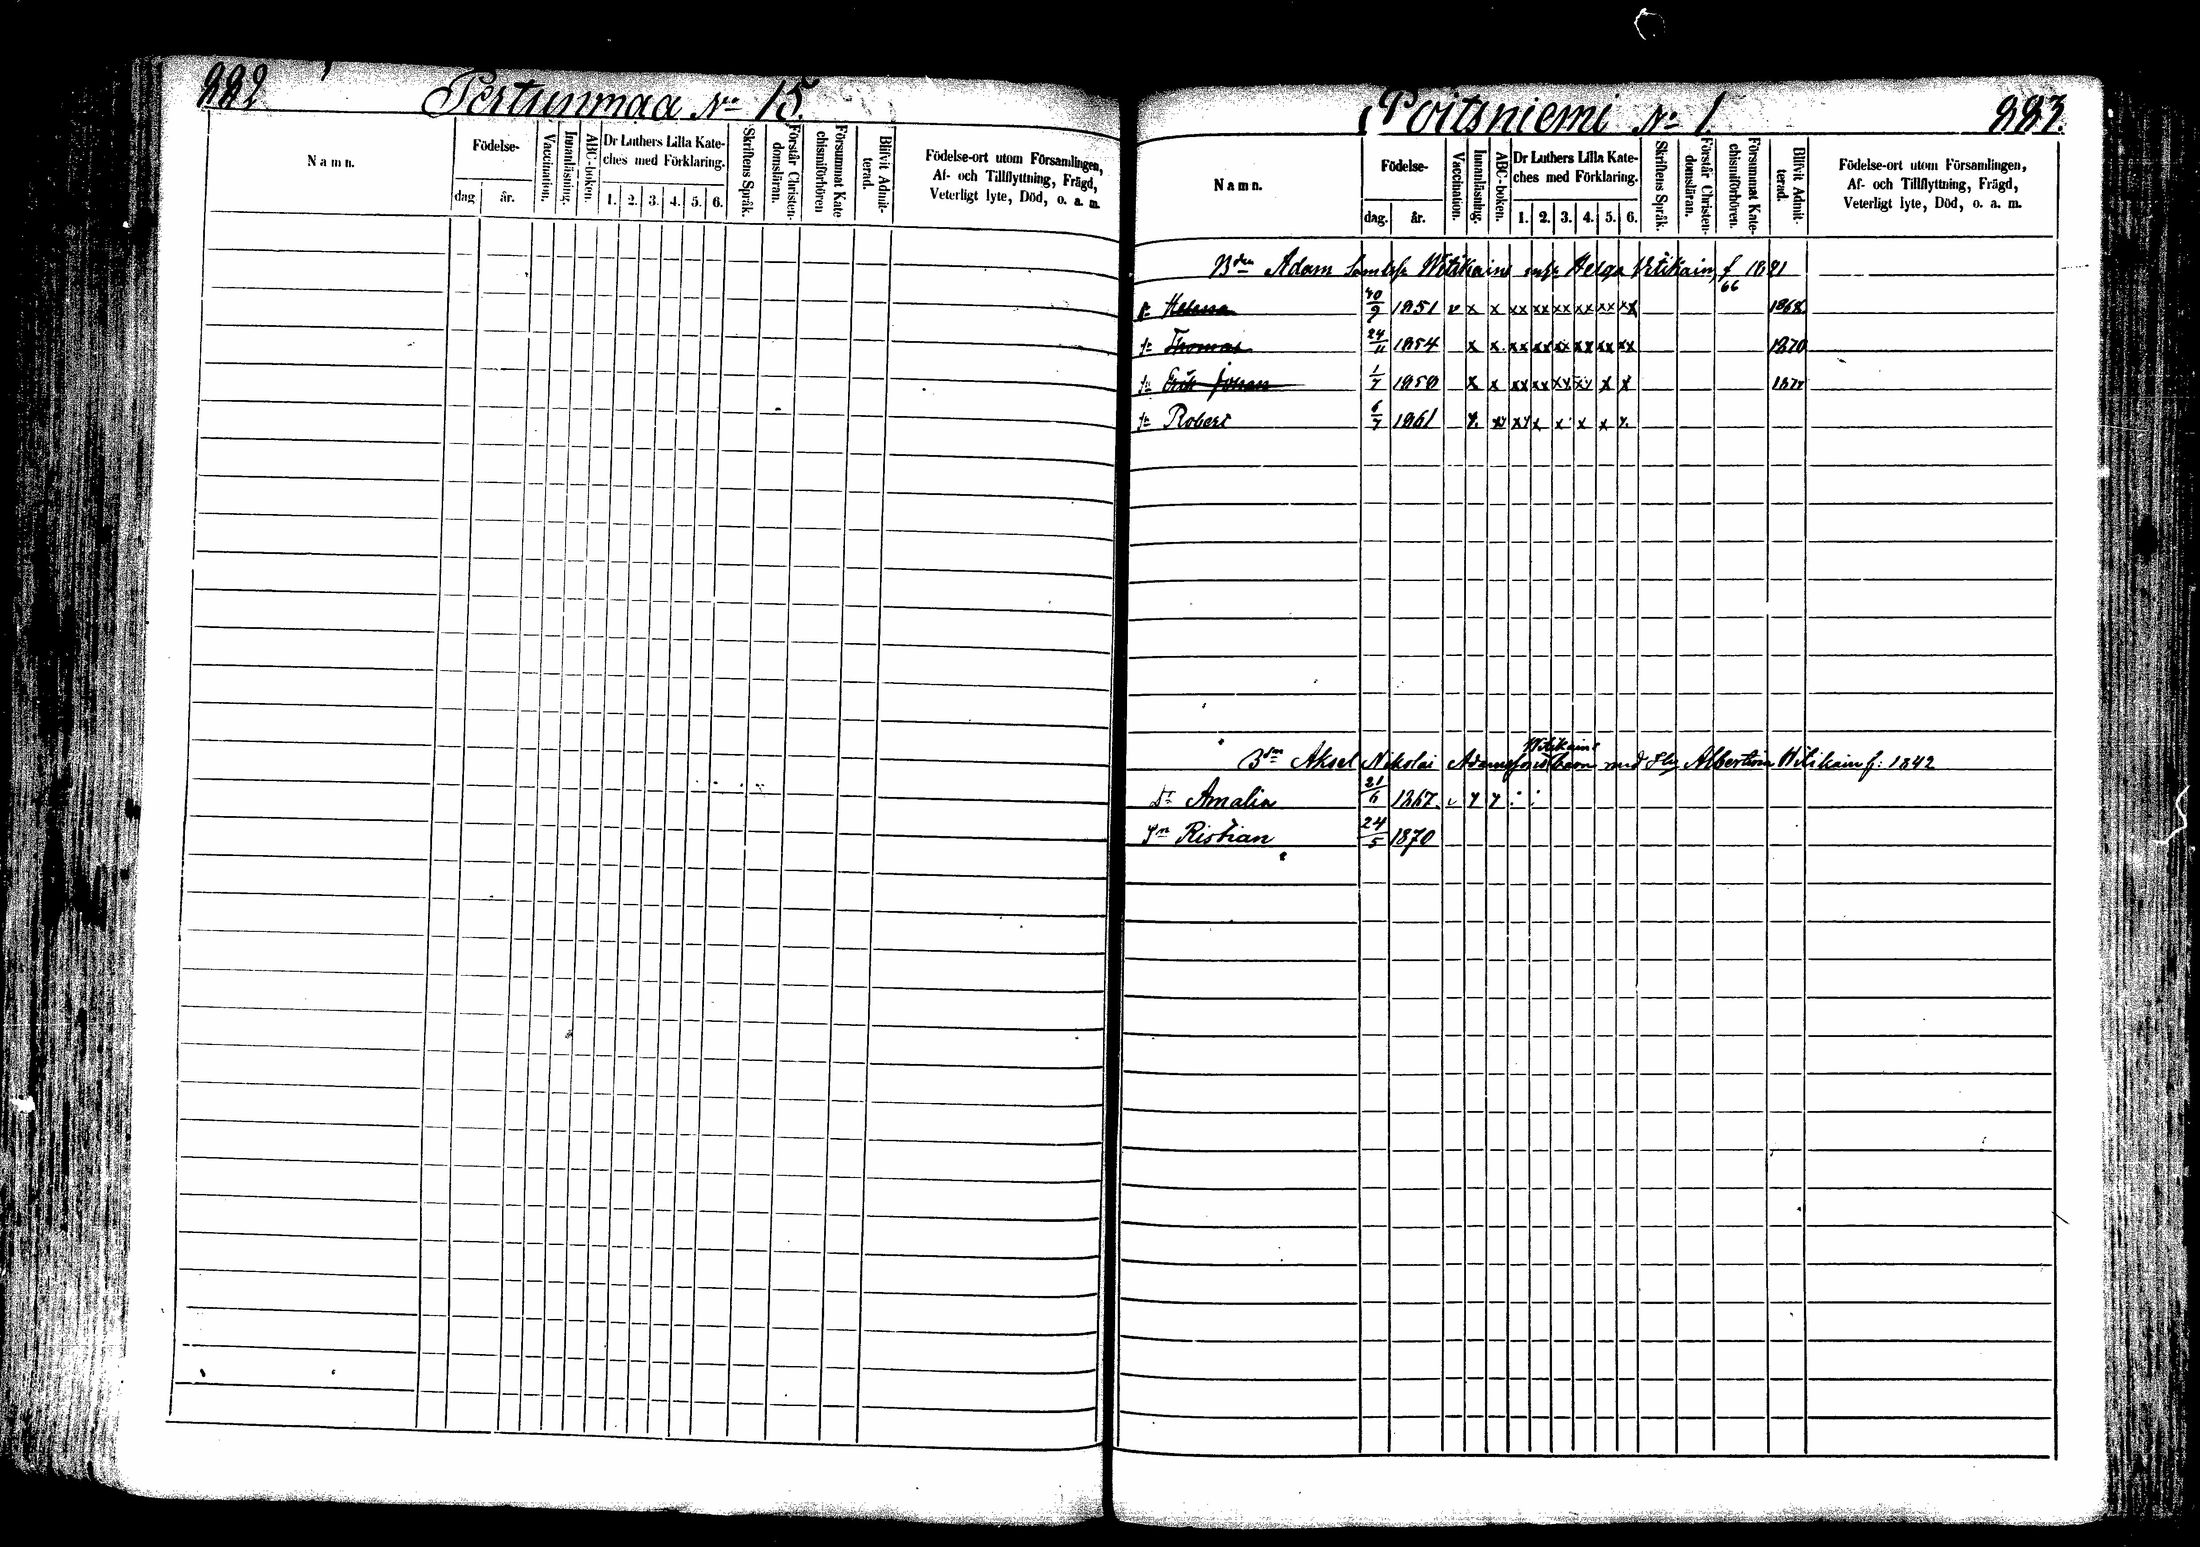 222
Pertunmaa No 15.
Namn.
Födelse-
dag
år.
Vaccination.
Innanläsning.
ABC-boken.
Dr Luthers Lilla Kate-
ches med Förklaring.
1. 2. 3. 4. 5. 6.
Skriftens Språk.
Förstår Christen-
domsläran.
Försummat Kate
chismiförhören
Blifvit Admit-
terad.
Födelse-ort utom Församlingen,
Af- och Tillflyttning, Frägd,
Veterligt lyte, Död, o. a. m.
Poitsniemi No 1.
223.
Namn.
Födelse-
dag.
år.
Vaccination.
Innanläsning.
ABC-boken.
Dr Luthers Lilla Kate-
ches med Förklaring.
1. 2. 3. 4. 5. 6.
Skriftens Språk.
Förstår Christen-
domsläran.
Försummat Kate-
chismiförhören.
Blifvit Admit-
terad.
Födelse-ort utom Församlingen,
Af- och Tillflyttning, Frägd,
Veterligt lyte, Död, o. a. m.
Bden Adam Witikains Helga Vitikain f 1821
66
Dr Helena 1851 v x x xx xx xx xx xx xx 1868
Sn Thomas 24/11 1854 x x xx xx xx xx xx xx 1870
Sn Erik Johan 1/7 1858 x x xx xx xx xx x x
Sn Robert 6/7 1861 x x x x
Witikains
Bdn Aksel Nikolai barn med Albertina Witikain f: 1842
Dr Amalia 21/6 1867. v
Sn Ristian 24/5 1870